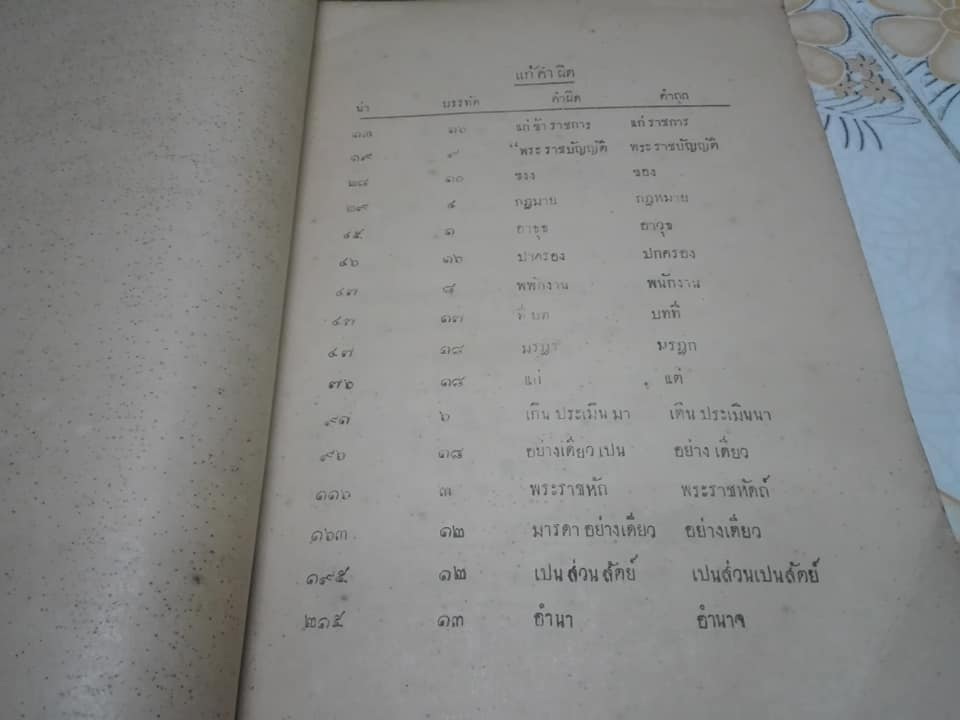 แก้คำผิด
น่า บรรทัด คำผิด คำถูก
๑๓ ๑๖ แก่ข้าราชการ แก่ราชการ
๑๙ ๙ “พระราชบัญญัติ พระราชบัญญัติ
๒๘ ๑๐ ซงง ของ
๒๙ ๔ กฎมาย กฎหมาย
๔๕ ๑ อาวุธ
๔๖ ๑๖ ปกครอง
๔๗ ๘ พนักงาน
๑๗ ที่บท บทที่
๔๗ ๑๘ มรฎก
๗๖ ๑๘ แก่ แต่
๙๑ ๖ เกินประเมินมา เดินประเมินนา
๙๖ ๑๘ อย่างเดียวเปน อย่างเดียว
๑๑๖ ๓ พระราชหัถ พระราชหัตถ์
๑๖๓ ๑๒ มารดาอย่างเดียว อย่างเดียว
๑๙๕ ๑๒ เปนส่วนสัตย์ เปนส่วนเปนสัตย์
๒๑๕ ๑๓ อำนา อำนาจ